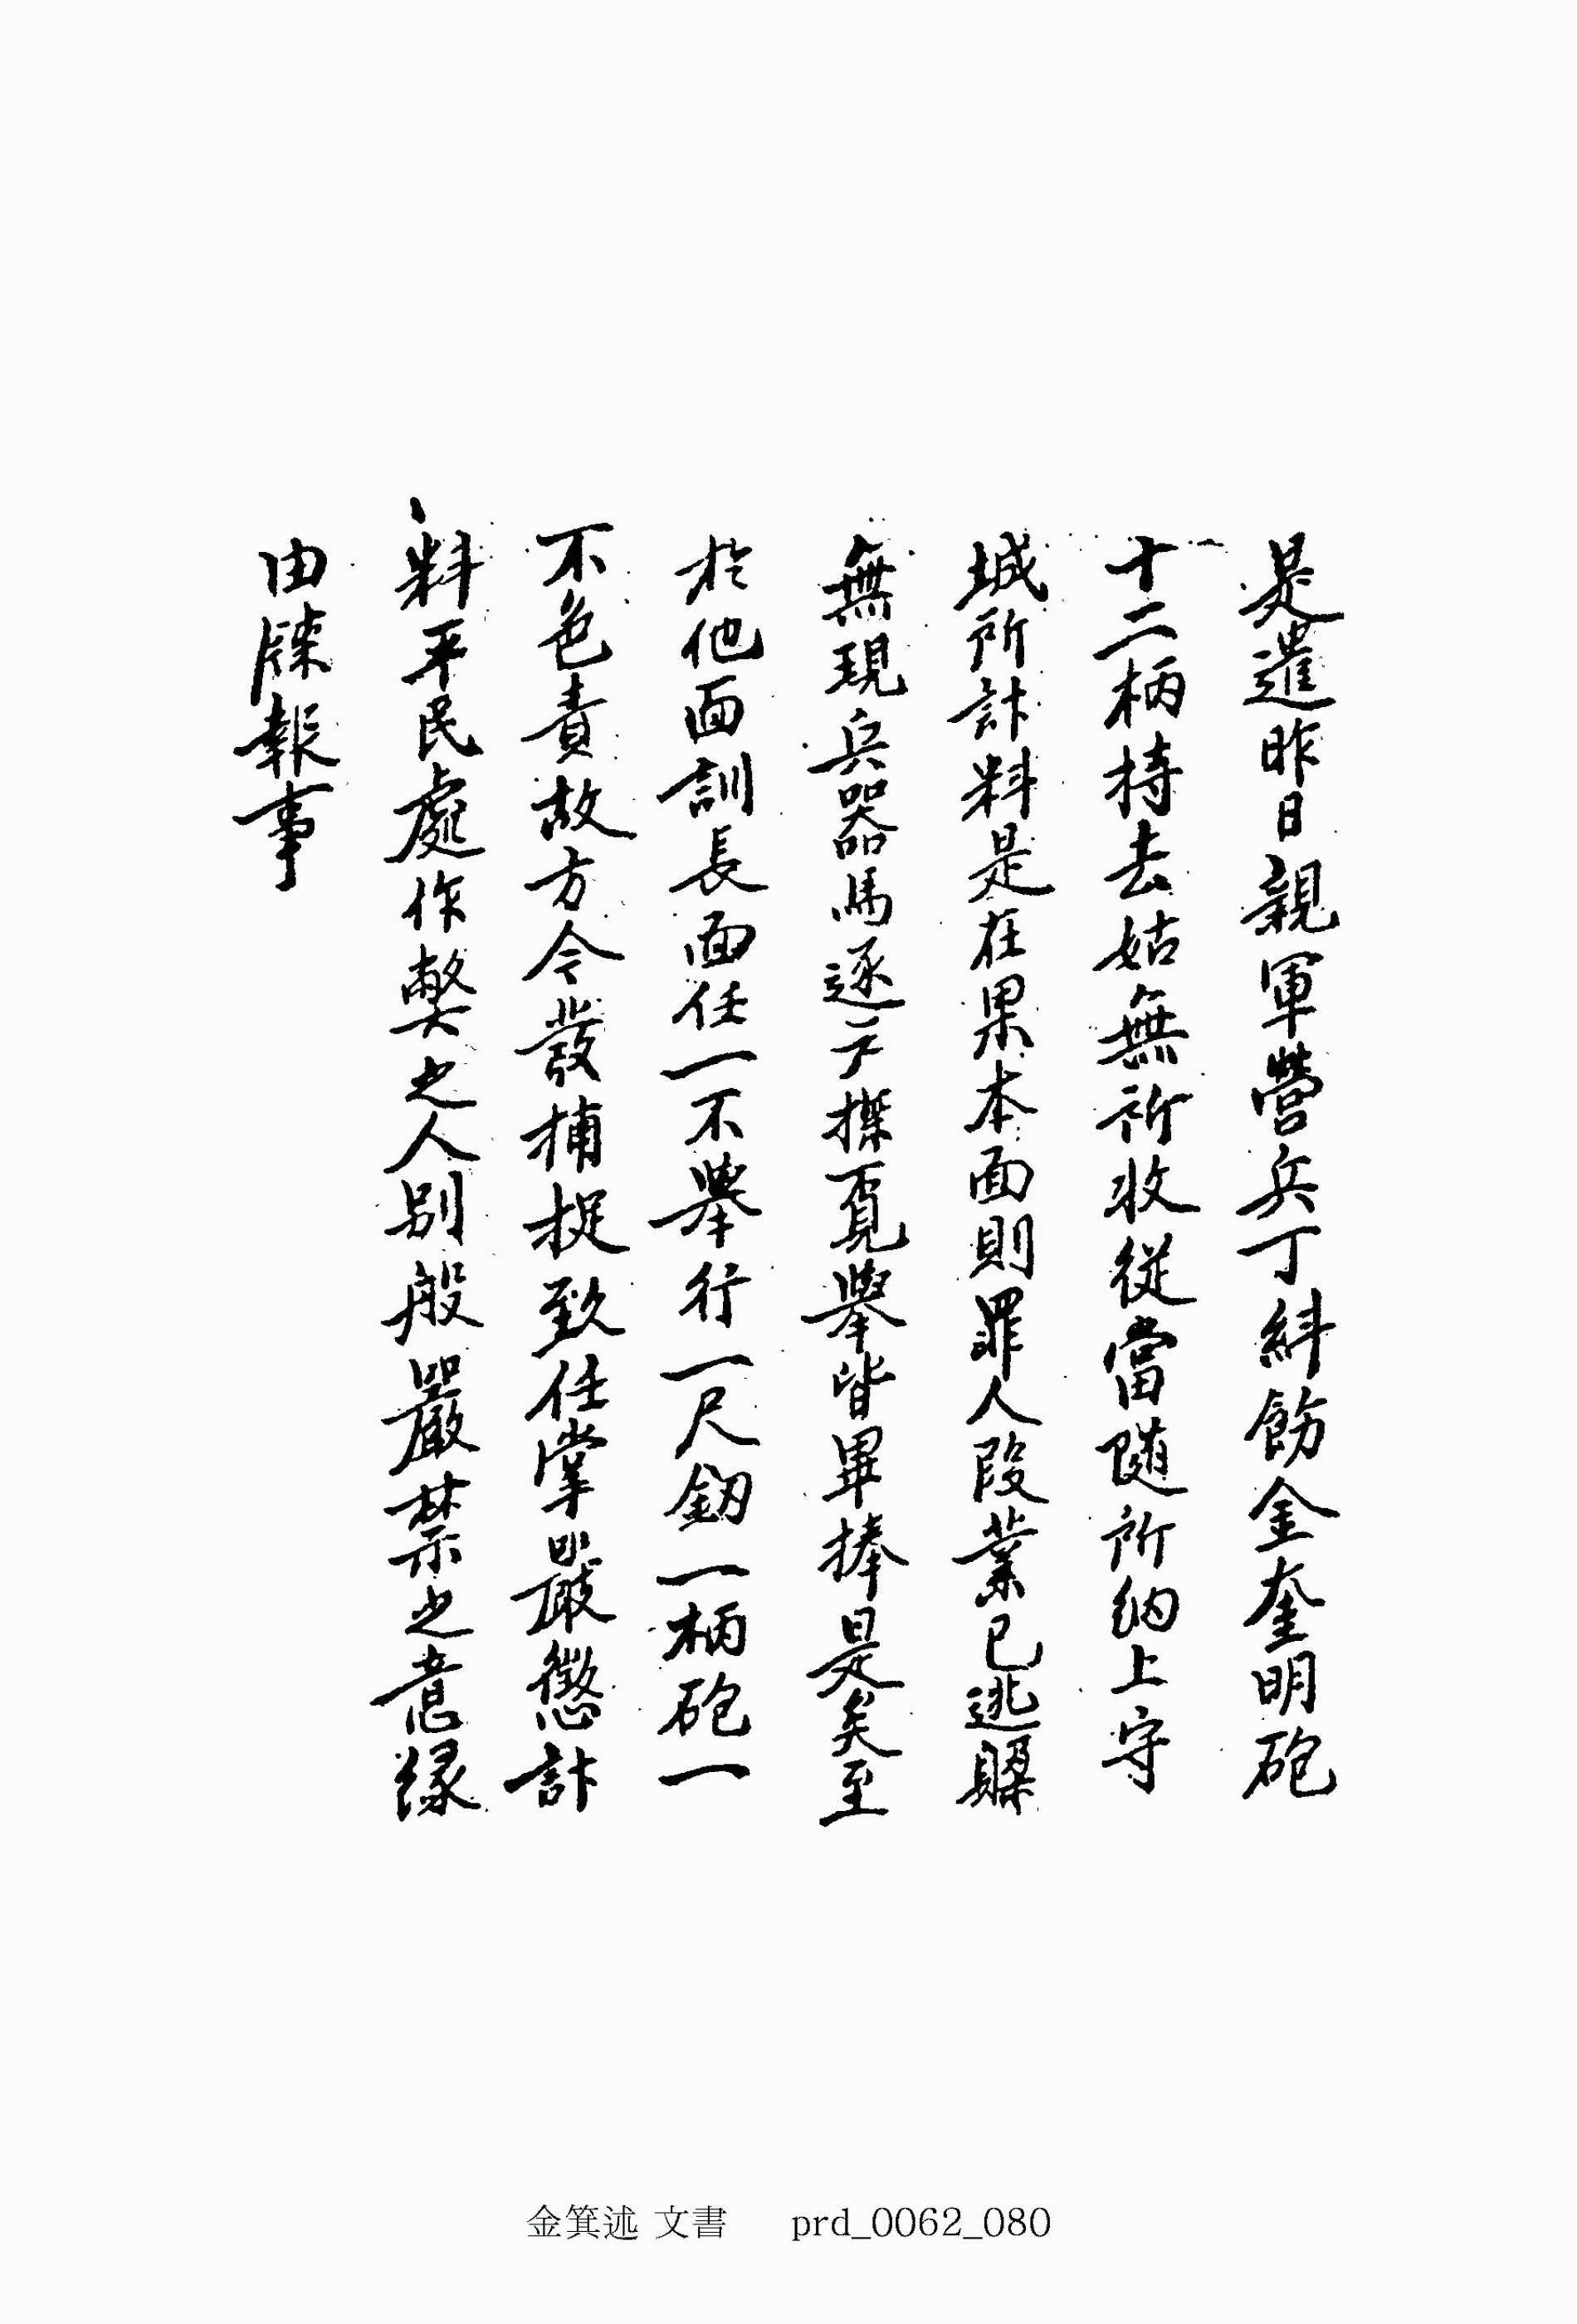 是遣昨日親軍營兵丁糾飭金奎明砲
十二柄持去姑無所收從當隨所納上守
城所計料是在果本面則罪人段業已逃躱
無現兵器馬逐戶搜覓擧皆畢捧是矣至
於他面訓長面任一不擧行一尺釰一柄砲一
不色責故方今發捕捉致任掌嚴懲計
料平民處作弊之人別般嚴禁之意緣
由牒報事
金箕述 文書 prd_0062_080